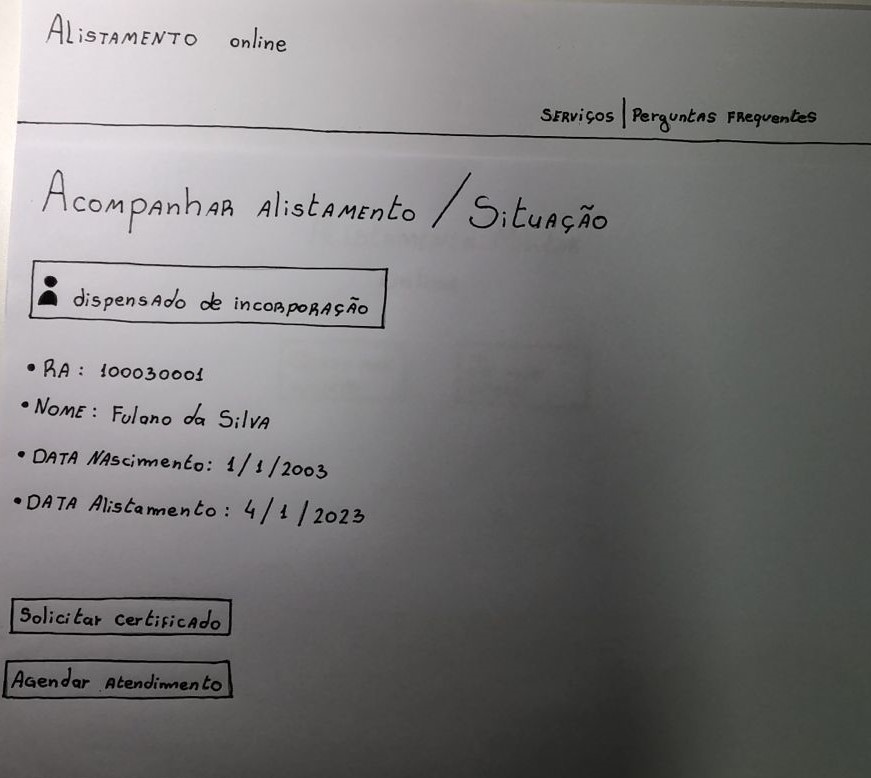 Alistamento online
Serviços | Perguntas Frequentes
Acompanhar Alistamento / Situação
dispensado de incorporação
• RA: 100030001
• Nome: Fulano da Silva
• Data Nascimento: 1/1/2003
• Data Alistamento: 4/1/2023
Solicitar certificado
Agendar Atendimento